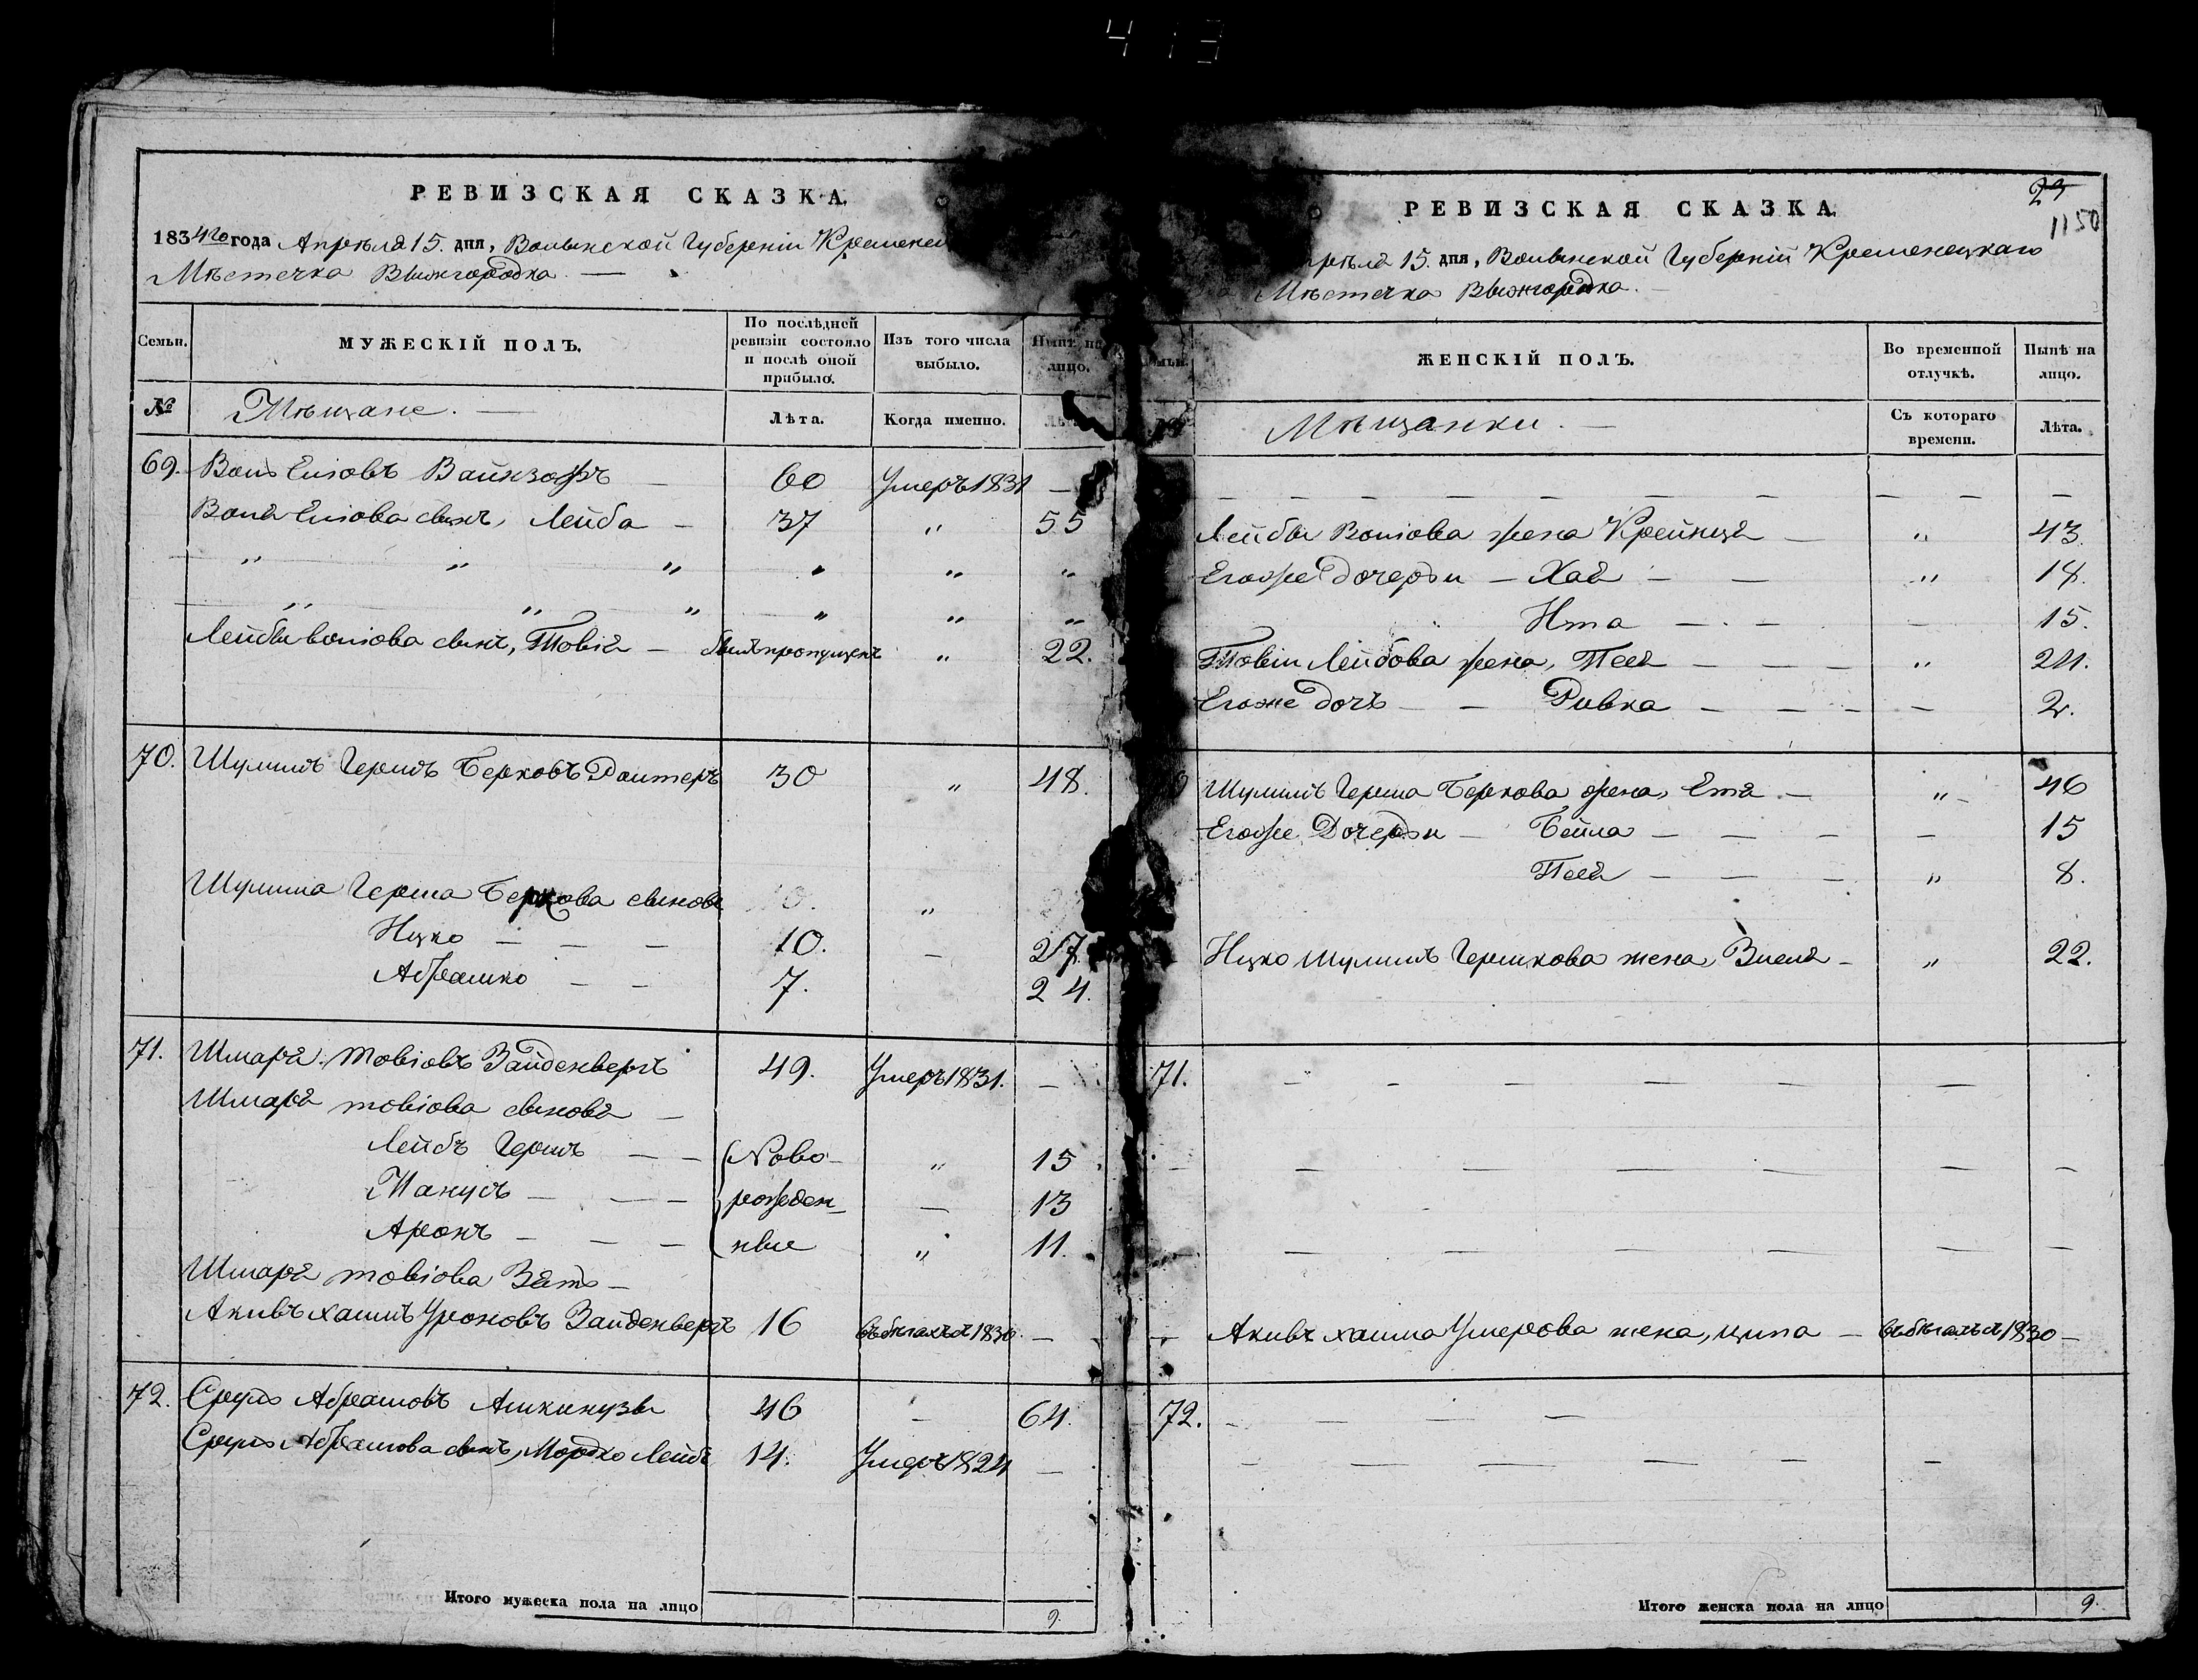 413
РЕВИЗСКАЯ СКАЗКА.
1834го года Апрѣля 15. дня, Волынской Губерніи Кременец
Мѣстечка Вышгородка. —
Семьи.
МУЖЕСКІЙ ПОЛЪ.
По послѣдней ревизіи состояло и послѣ оной прибыло.
Изъ того числа выбыло.
Нынѣ на лицо.
№
Мѣщане. —
Лѣта.
Когда именно.
Лѣта
69. Волъ Еліовъ Вайнзофъ — 60 Умеръ 1831 —
Воля Еліова сынъ, Лейба — 37 " 55
" " " " " "
" " " " " "
Лейбы Воліова сынъ, Товія — былъ пропущенъ " 22.
70. Шулимъ Гершъ Берковъ Раитеръ 30 " 48.
Шулима Герша Беркова сыновя "
Ицко — — — 10. — 27.
Абрашко — — 7. 24.
71. Шмаря Товіовъ Зайденвергъ 49. Умеръ 1831. —
Шмаря товіова сыновя —
Лейбъ Гершъ — — Ново- " 15
Манусъ — — — рожден- — 13
Аронъ — — — ные " 11.
Шмаря товіова Зять —
Акивъ хаимъ Уроновъ Зайденвергъ 16 въ бѣгахъ съ 1830 —
72. Сруль Абрамовъ Ашкинузы 46 — 64.
Сруль Абрамова сынъ, Мордко Лейбъ 14. Умеръ 1824 —
Итого мужеска пола на лицо 9.
29
1150
РЕВИЗСКАЯ СКАЗКА.
прѣля 15. дня, Волынской Губерній Кременецкаго
Мѣстечка Вышгородка. —
ЖЕНСКІЙ ПОЛЪ.
Во временной отлучкѣ.
Нынѣ на лицо.
Мѣщанки. —
Съ котораго времени.
Лѣта.
— — — — — — — — — —
Лейбы Воліова жена Крейнця — " 43.
Егоже дочери — Хая — — " 18.
Ита — — — 15.
Товіи Лейбова жена, Пея — — — " 24.
Егоже дочь — — Ривка — — — — 2.
Шулимъ Герша Беркова жена, Етя — " 46
Егоже Дочери — Бейла — — — — 15
Пея — — — " 8.
Ицко Шулимъ Гершкова жена, Внея — " 22.
71. — — — — — —
— — — — — — —
— — — — — —
— Акивъ хаима Умерова жена, ципа — въ бѣгахъ съ 1830 —
72. — — — —
— — — — — —
Итого женска пола на лицо 9.